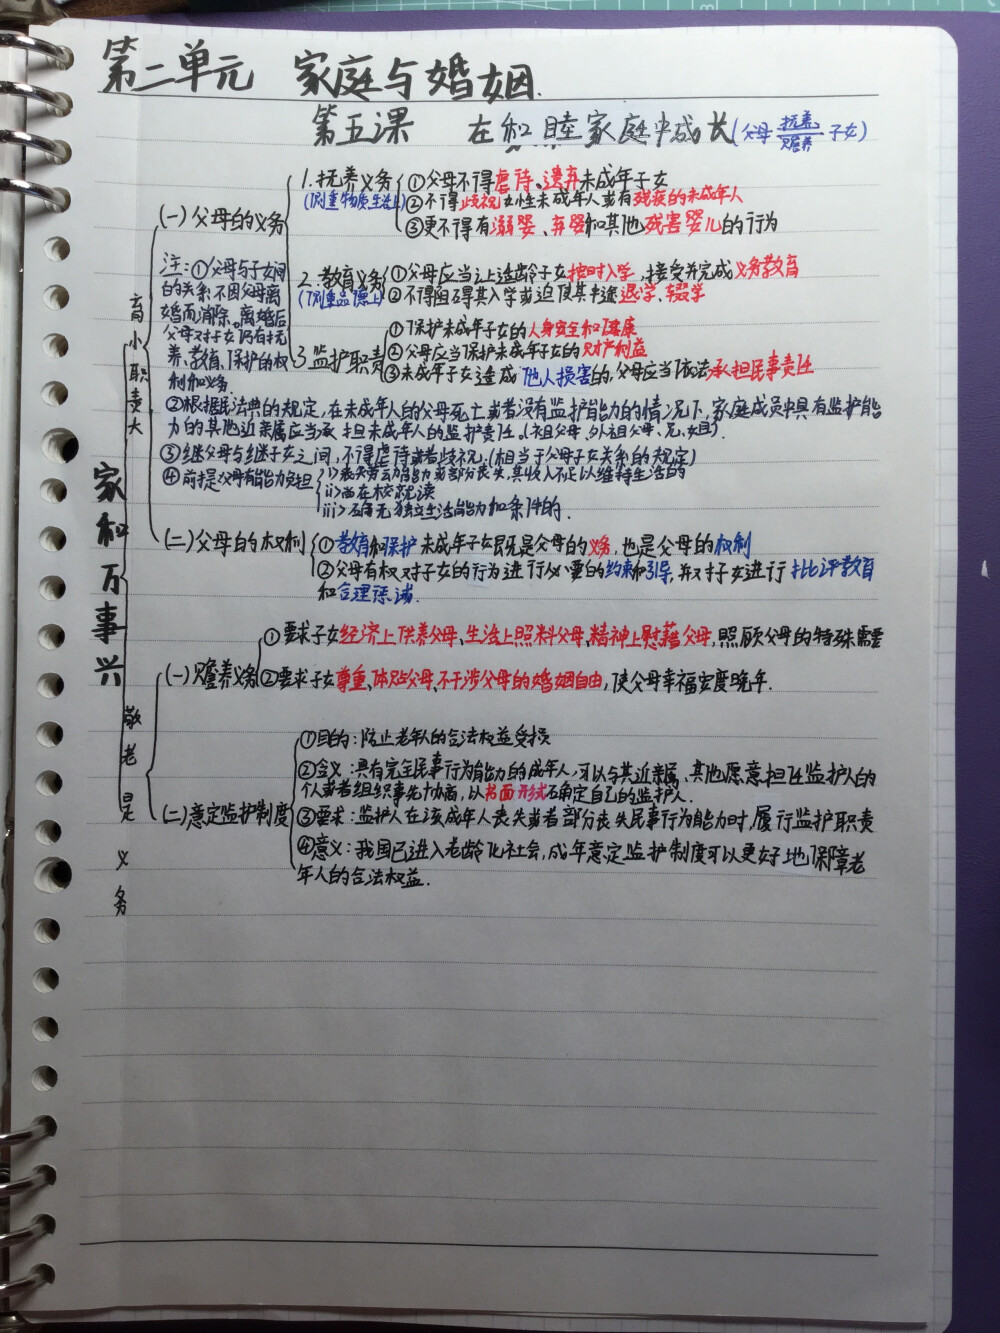 第二单元 家庭与婚姻.
第五课 在和睦家庭中成长(父母 抚养 赡养 子女)
家和万事兴
育小职责大
(一)父母的义务
1.抚养义务
(侧重物质生活上)
①父母不得虐待、遗弃未成年子女
②不得歧视女性未成年人或有残疾的未成年人
③更不得有溺婴、弃婴和其他残害婴儿的行为
2.教育义务
(侧重品德上)
①父母应当让适龄子女按时入学,接受并完成义务教育
②不得阻碍其入学或迫使其中途退学、辍学
3.监护职责
①保护未成年子女的人身安全和健康
②父母应当保护未成年子女的财产利益
③未成年子女造成他人损害的,父母应当依法承担民事责任
注:①父母与子女间
的关系,不因父母离
婚而消除。离婚后
父母对子女仍有抚
养、教育、保护的权
利和义务.
②根据民法典的规定,在未成年人的父母死亡或者没有监护能力的情况下,家庭成员中具有监护能
力的其他近亲属应当承担未成年人的监护责任。(祖父母、外祖父母、兄、姐).
③继父母与继子女之间,不得虐待或者歧视.(相当于父母子女关系的规定)
④前提:父母有能力负担
i>丧失劳动能力或部分丧失,其收入不足以维持生活的
ii>尚在校就读
iii>确无独立生活能力和条件的.
(二)父母的权利
①教育和保护未成年子女既是父母的义务,也是父母的权利
②父母有权对子女的行为进行必要的约束和引导,并对子女进行批评教育
和合理惩诫.
敬老是义务
(一)赡养义务
①要求子女经济上供养父母、生活上照料父母、精神上慰藉父母,照顾父母的特殊需要
②要求子女尊重、体贴父母、不干涉父母的婚姻自由,使父母幸福安度晚年.
(二)意定监护制度
①目的:防止老年人的合法权益受损
②含义:具有完全民事行为能力的成年人,可以与其近亲属、其他愿意担任监护人的
个人或者组织事先协商,以书面形式确定自己的监护人.
③要求:监护人在该成年人丧失或者部分丧失民事行为能力时,履行监护职责
④意义:我国已进入老龄化社会,成年意定监护制度可以更好地保障老
年人的合法权益.